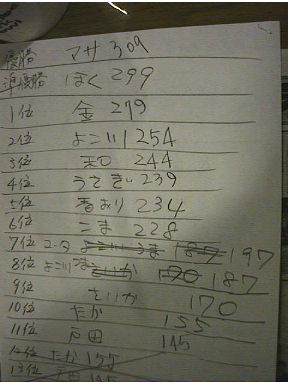 優勝 マサ 309
準優勝 ぼく 299
1位 金 279
2位 よこい 254
3位 知 244
4位 うさぎ 239
5位 香おり 234
6位 こま 228
7位 ユータ 197
8位 よこい 187
9位 せいか 170
10位 たか 155
11位 戸田 145
12位 たか 155
13位 戸田 145